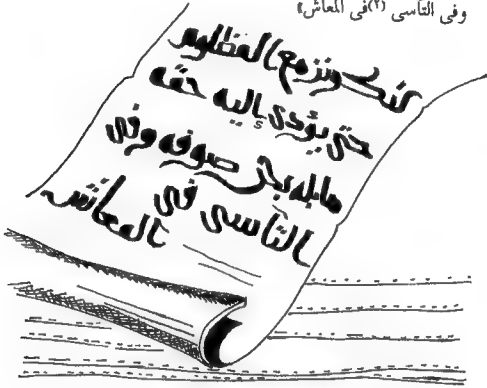 وفى التأسى (٢) فى المعاش»
لنكونن مع المظلوم
حتى يؤدى إليه حقه
ما بل بحر صوفه وفى
التأسى فى المعاش